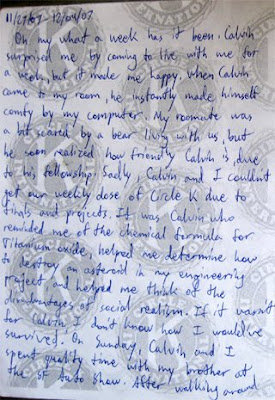 11/27/07 - 12/04/07
Oh my what a week has it been. Calvin
surprised me by coming to live with me for
a week, but it made me happy, when Calvin
came to my room, he instantly made himself
comfy by my computer. My roomate was
a bit scared by a bear living with us, but
he soon realized how friendly Calvin is due
to his fellowship. Sadly, Calvin and I couldn't
get our weekly dose of Circle K due to
finals and projects. It was Calvin who
reminded me of the chemical formula for
Titanium oxide, helped me determine how
to destroy an asteroid in my engineering
project and helped me think of the
disadvantages of social realism. If it wasn't
for Calvin I don't know how I would've
survived. On Sunday, Calvin and I
spent quality time with my brother at
the SF auto show. After walking around